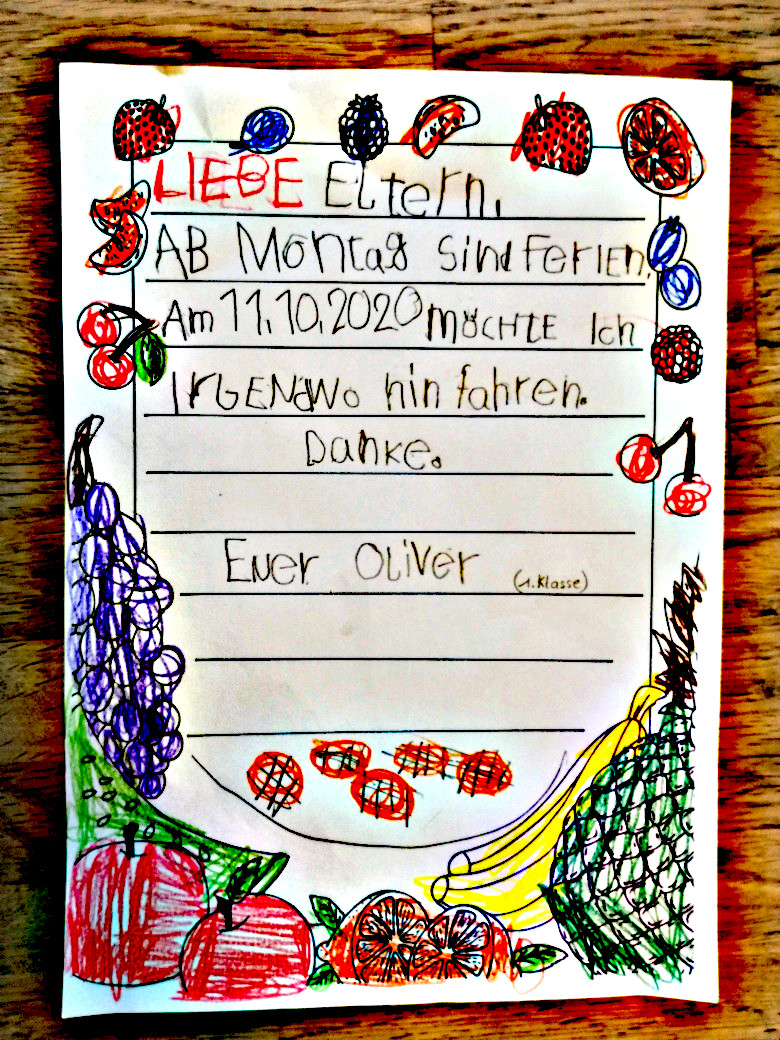 LIEBE Eltern,
AB Montag sind FerIEn.
Am 11.10.2020 möCHTE Ich
IrGENdWo hin fahren.
Danke.
Euer OLiVer (1. Klasse)